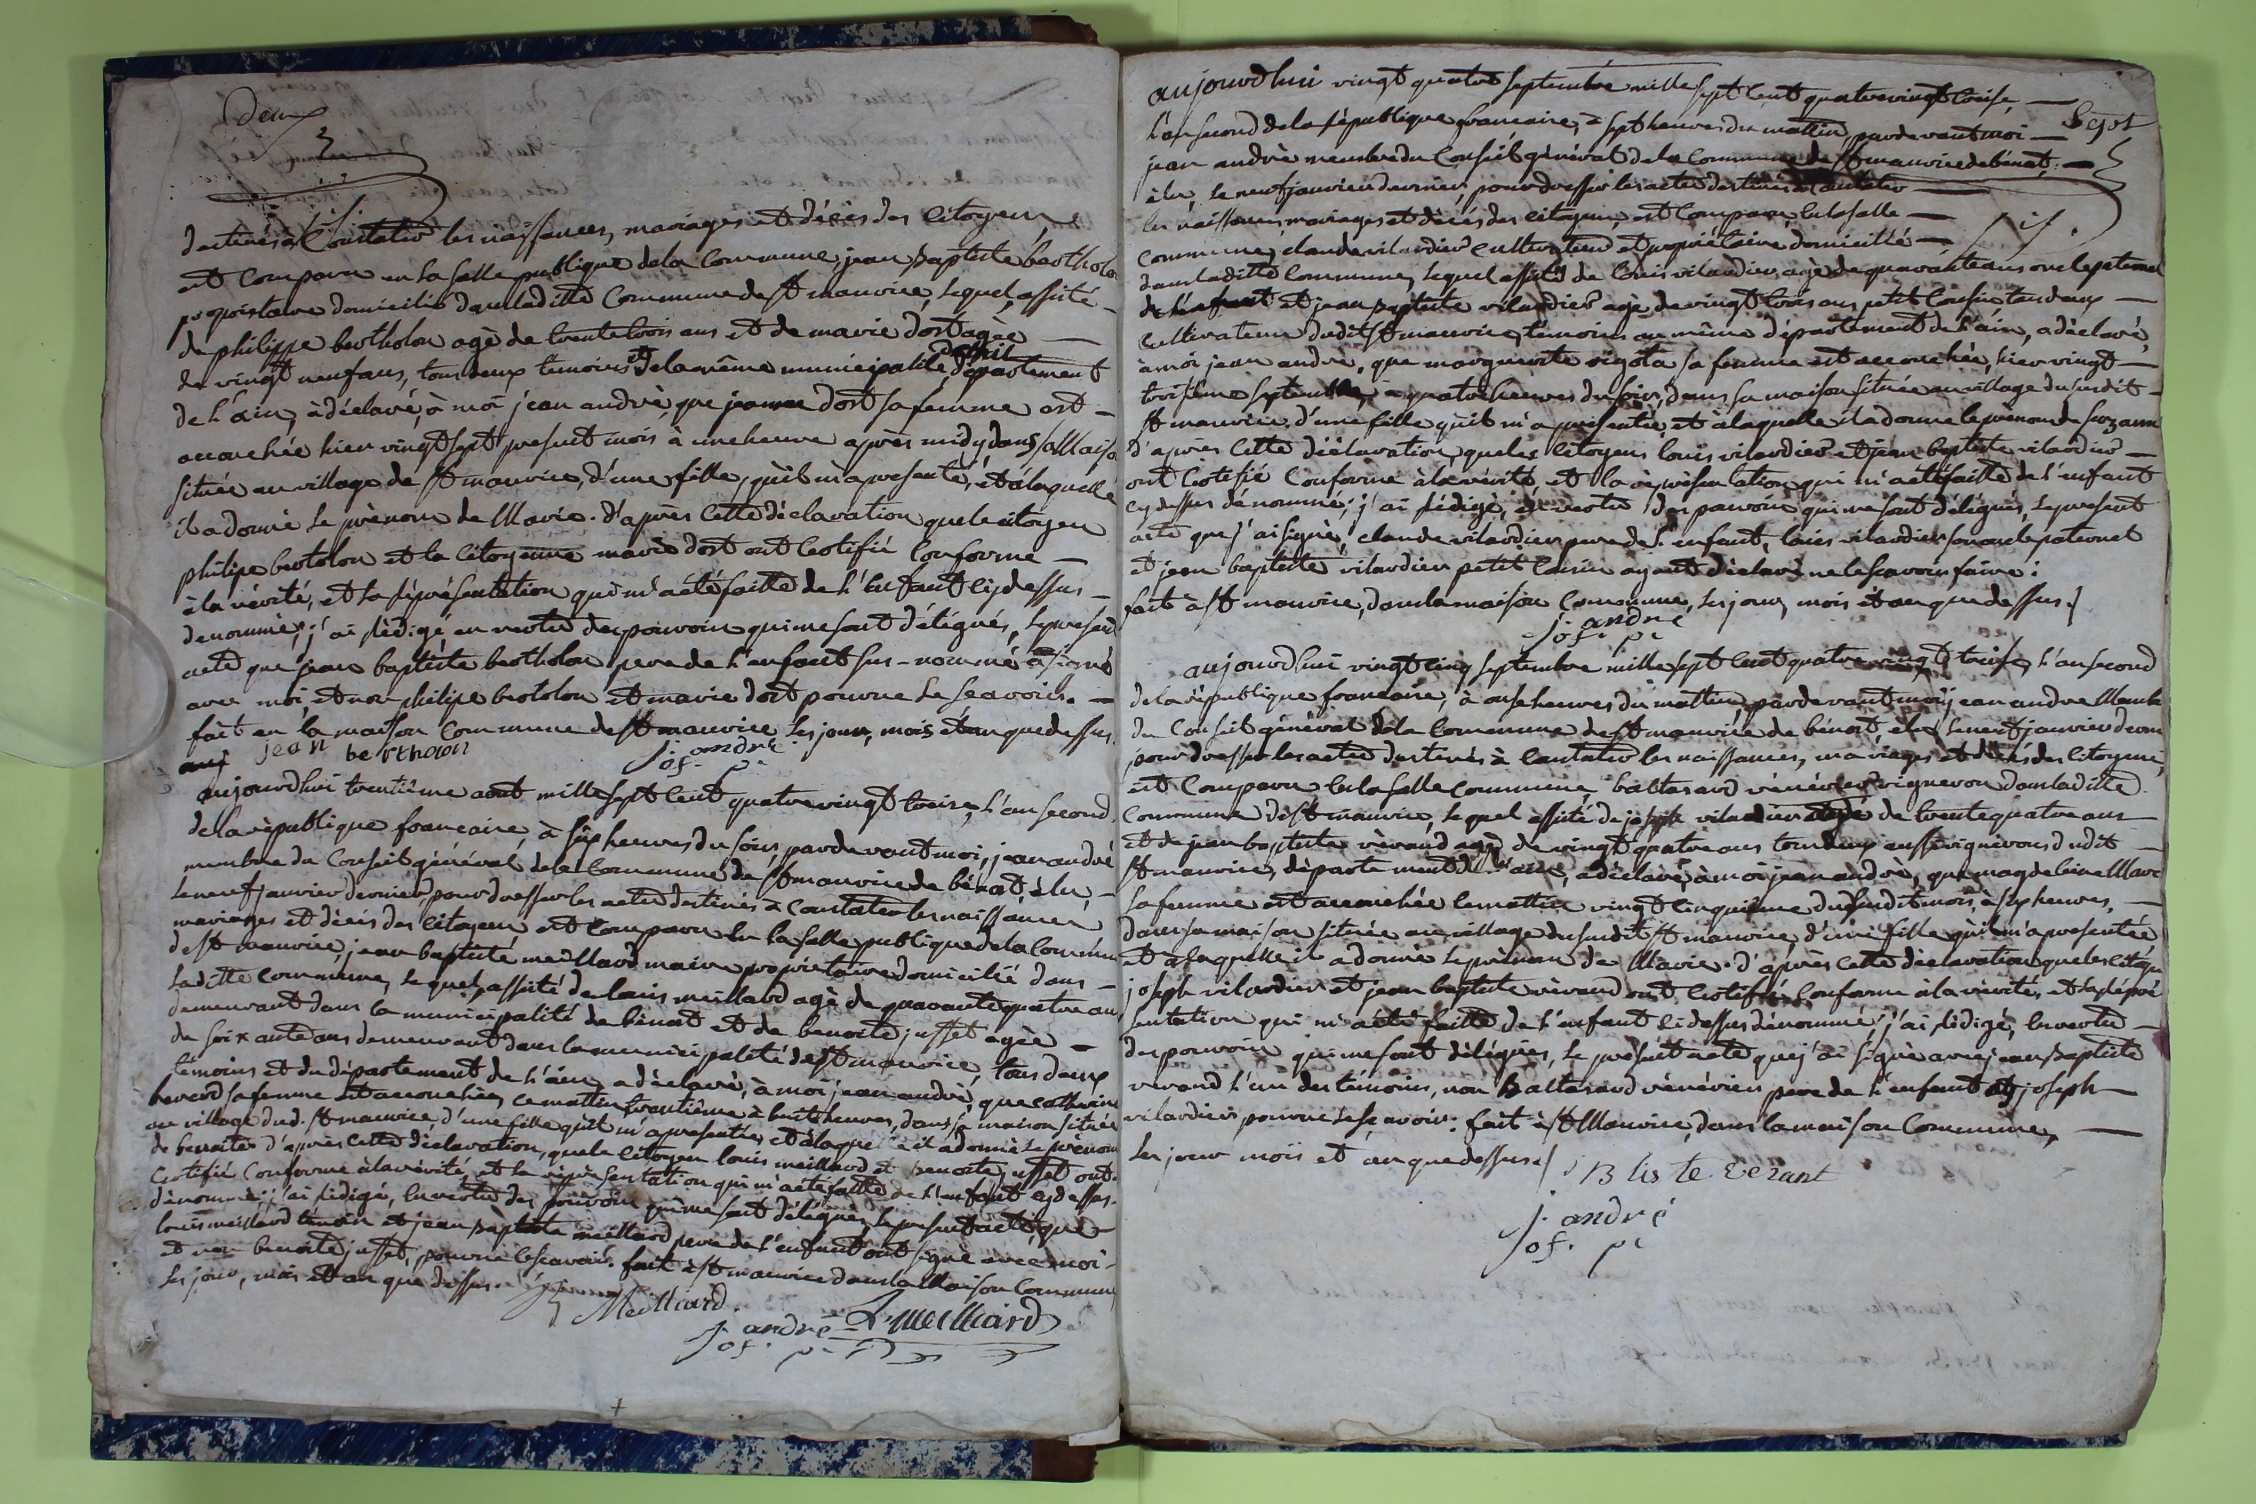 Deux
destinés à Constater les naissances, mariages et décès des Citoyens
est Comparu en la salle publique de la Commune, jean baptiste bertholon
propriétaire domicilié dans laditte Commune de st maurice, lequel, assisté
de philippe bertholon agé de trente trois ans et de marie dost agée
de vingt neuf ans, tous deux témoins et de la même municipalité, département
de l'ain, à déclaré, à moi jean andré, que jeanne dost sa femme est
accouchée hier vingt sept present mois à une heure après midy, dans sa Maison
située au village de st maurice, d'une fille, qu'il m'a presenté, et à laquelle
il a donné le prénom de Marie. d'après Cette déclaration que le citoyen
philipe bertolon et la Citoyenne marie dost ont Certifié Conforme
à la vérité, et la réprésentation qui m'a été faitte de l'Enfant cy dessus
denommé; j'ai rédigé en vertu des pouvoirs qui me sont délégués, le present
acte que jean baptiste bertholon pere de l'enfant sus-nommé a signé
avec moi, et non philipe bertolon et marie dost pour ne le scavoir.
fait en la maison Commune de st maurice les jour, mois et an que dessus.
jean bertholon j. andré
of. p.
aujourdhui trentième aout mille sept Cent quatre vingt treize, l'an second
de la république francaire, à six heures du soir, pardevant moi, jean andré
membre du Conseil général de la Commune de st maurice de bénot, élu,
le neuf janvier dernier, pour dresser les actes destinés à Constater les naissances
mariages et décès des Citoyens est Comparu en la salle publique de la Commune
de st maurice, jean baptiste meillard maire propriétaire domicilié dans
ladette Commune, lequel, assisté de louis meillard agé de quarante quatre ans
demeurant dans la municipalité de bénot et de benoite jusset agée
de soixante ans demeurant dans la municipalité de st maurice, tous deux
témoins et du département de l'ain, a déclaré, à moi jean andré, que catherine
berard sa femme est accouchée, ce matin trentième à huit heures, dans sa maison située
au village dud. st maurice, d'une fille qu'il m'a presentée, et à laquelle il a donné le prénom
de benoite d'après Cette déclaration, que le Citoyen louis meillard et benoite jusset ont
Certifié Conforme à la vérité, et la réprésentation qui m'a été faitte de l'enfant cy dessus
dénommé; j'ai rédigé, En vertu des pouvoirs qui me sont délégués, le present acte, que
louis meillard témoin et jean baptiste meillard pere de l'enfant ont signé avec moi
et non benoite jusset, pour ne le scavoir. fait à st maurice dans la Maison Commune
les jour, mois et an que dessus.
Meilliard.
j. andré L. Meilliard
of. p.
aujourdhui vingt quatre septembre mille sept Cent quatre vingt troise,
l'an second de la république francaire, à sept heures du mattin, pardevant moi
jean andré membre du Conseil général de la Commune de st maurice de bénot,
élu, le neuf janvier dernier, pour dresser les actes destinés à Constater
les naissances, mariages et décès des citoyens, est Comparu, en la salle
Commune, claude vilardier Cultivateur et propriétaire domicilié
dans laditte Commune, lequel assisté de louis vilardier, agé de quarante ans oncle paternel
de l'enfant et jean baptiste vilardier agé de vingt trois ans petit Cousin tous deux
Cultivateurs dudit st maurice, temoins au même département de l'ain, a déclaré,
à moi jean andré, que marguerite rigola sa femme est accouchée, hier vingt
troisième septembre, à quatre heures du soir, dans sa maison située au village du susdit
st maurice, d'une fille qu'il m'a presentée, et à laquelle il a donné le prénom de Suzanne
d'après Cette déclaration, que les Citoyens louis vilardier et jean baptiste vilardier
ont Certifié Conforme à la vérité, et la réprésentation qui m'a été faitte de l'enfant
cy dessus dénommé; j'ai rédigé, en vertu des pouvoirs qui me sont délégués, le present
acte que j'ai signé, claude vilardier pere de l'enfant, louis vilardier son oncle paternel
et jean baptiste vilardier petit Cousin ayant déclaré ne le scavoir faire.
fait à st maurice, dans la maison Commune, les jour, mois et an que dessus.
j. andré
of. p.
aujourdhui vingt cinq septembre mille sept Cent quatre vingt troise, l'an second
de la république francaire, à onse heures du mattin, pardevant moi, jean andre Membre
du Conseil général de la Commune de st maurice de bénot, élu le neuf janvier dernier
pour dresser les actes destinés à Constater les naissances, mariages et décès des Citoyens,
est Comparu en la salle Commune baltasard vigneron dans laditte
Commune de st maurice, lequel assisté de joseph vilardier agé de trente quatre ans
et de jean baptiste agé de vingt quatre ans tous deux aussi vignerons dudit
st maurice, département de l'ain, a déclaré, à moi jean andré, que magdeleine
sa femme est accouchée le mattin vingt Cinquième du susdit mois, à six heures,
dans sa maison située au village du susdit st maurice, d'une fille qu'il m'a presentée
et à laquelle il a donné le prénom de Marie. d'après Cette déclaration que les Citoyens
joseph vilardier et jean baptiste ont Certifiés Conforme à la vérité, et la répré
sentation qui m'a été faitte de l'enfant ci dessus dénommé; j'ai rédigé, En vertu
des pouvoirs qui me sont délégués, le présent acte que j'ai signé avec jean baptiste
l'un des témoins, non Baltasard pere de l'enfant et joseph
vilardier pour ne le scavoir: fait à st Maurice, dans la maison Commune,
les jour mois et an que dessus.
j B tis te verant
j. andré
of. p.